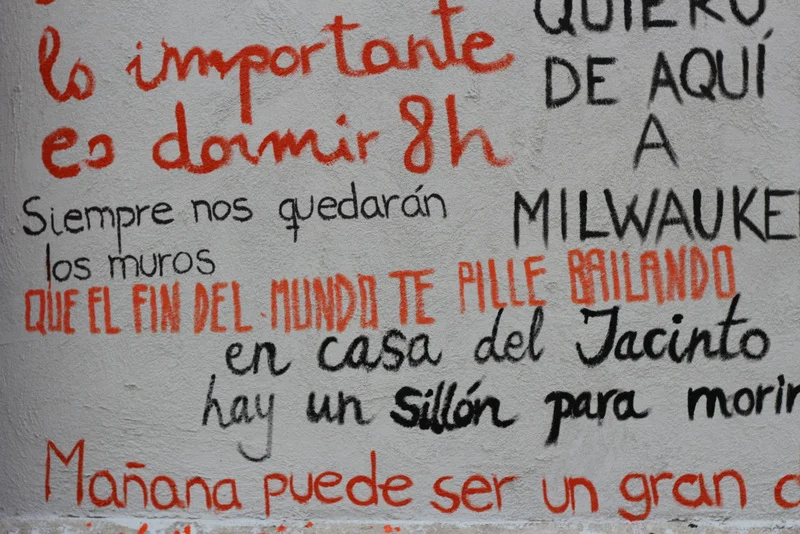 lo importante
es dormir 8h
QUIERO
DE AQUÍ
A
MILWAUKE
Siempre nos quedarán
los muros
QUE EL FIN DEL MUNDO TE PILLE BAILANDO
en casa del Jacinto
hay un sillón para morir
Mañana puede ser un gran